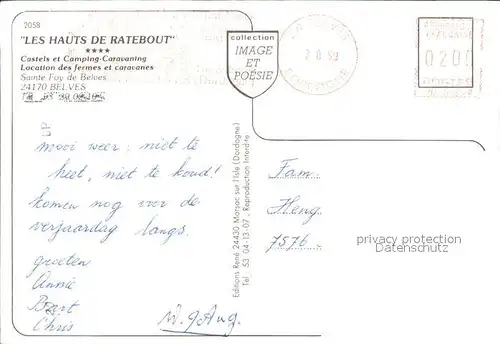 2058
"LES HAUTS DE RATEBOUT"
★★★★
Castels et Camping-Caravaning
Location des fermes et caravanes
Sainte Foy de Belves
24170 BELVES
collection
IMAGE
ET
POÉSIE
DORDOGNE
0200
POSTES
mooi weer: niet te
heet, niet te koud!
komen nog voor de
verjaardag langs.
groeten
Annie
Bert
Chris
Editions René 24430 Marsac sur l'Isle (Dordogne)
Tél. 53 04-13-07, Reproduction Interdite
Fam.
Heng.
7576
privacy protection
Datenschutz